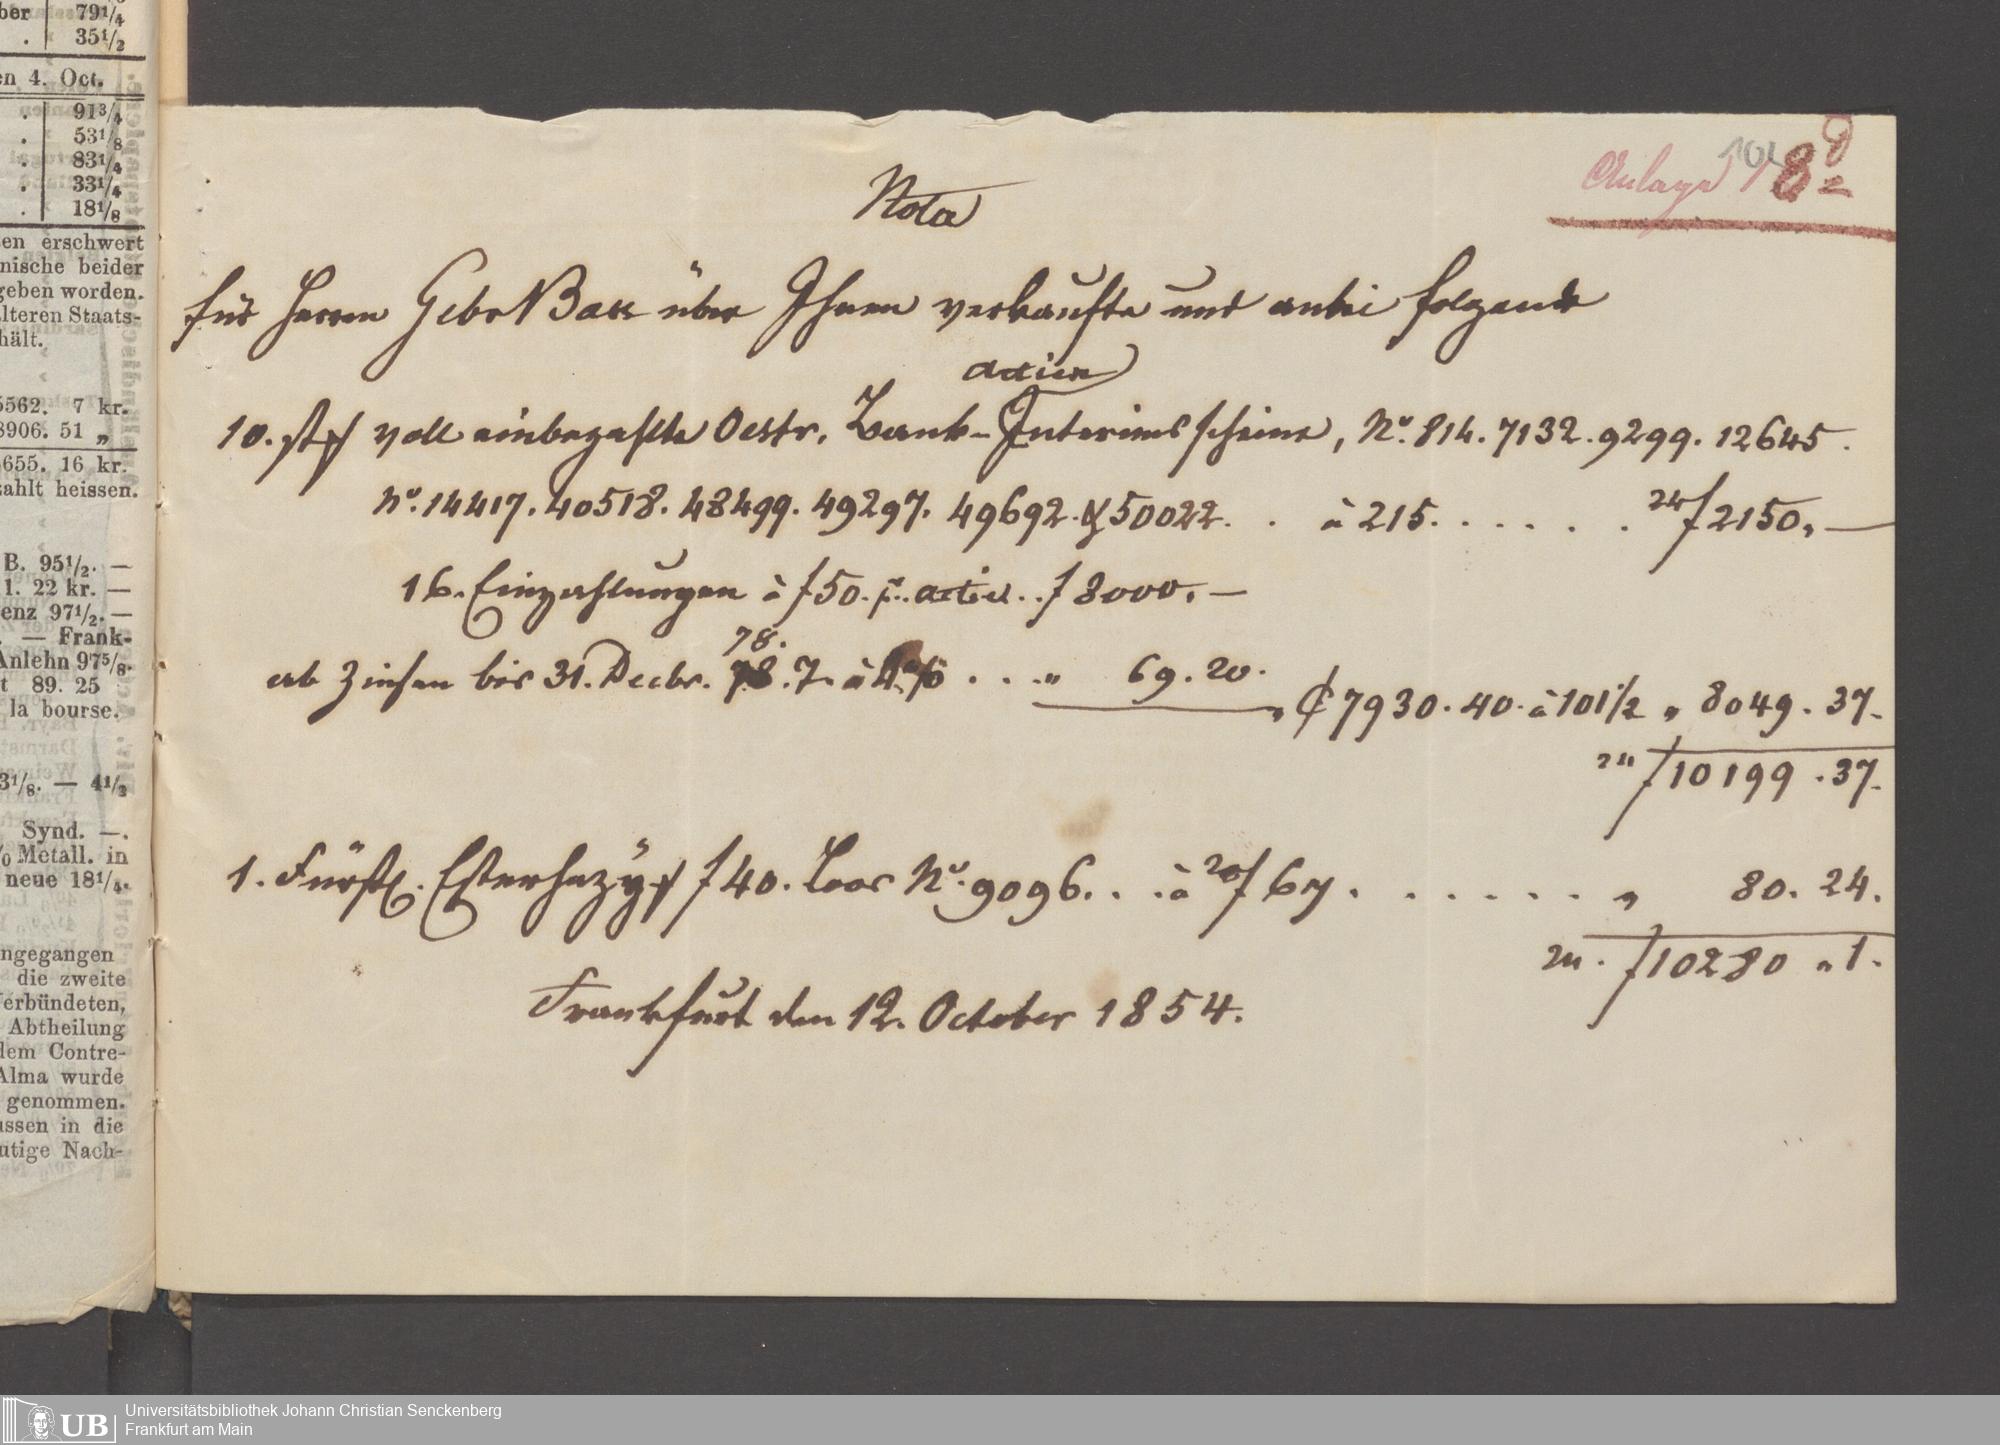 ber 79 1/4
. 35 1/2
en 4. Oct.
. 91 3/4
. 53 1/8
. 83 1/4
. 33 1/4
. 18 1/8
en erschwert
nische beider
geben worden.
lteren Staats-
hält.
5562. 7 kr.
8906. 51 „
655. 16 kr.
zahlt heissen.
B. 95 1/2. —
1. 22 kr. —
enz 97 1/2. —
. — Frank-
Anlehn 97 5/8.
t 89. 25
la bourse.
3 1/8. — 4 1/2
Synd. —.
/0 Metall. in
neue 18 1/4.
ngegangen
die zweite
erbündeten,
Abtheilung
dem Contre-
Alma wurde
genommen.
ussen in die
utige Nach-
Anlage 18
Nota
für Herren Gebr Bass über Ihnen verkaufte und anbei folgende
Actien
10. st voll einbezahlte Oestr. Bank-Interimsscheine, No. 814. 7132. 9299. 12645.
No. 14417. 40518. 48499. 49297. 49692. & 50022. . à 215. . . . . . f 2150. —
16. Einzahlungen à f 50. pr. actie. . f 8000. —
78.
ab Zinsen bis 31. Decbr. . 7. à . . . " 69. 20.
" 7930. 40. à 101 1/2 " 8049. 37.
f 10199. 37.
1. Fürstl. Esterhazy f 40. Loos No. 9096. . . à f 67. . . . . . . " 80. 24.
f 10280 " 1.
Frankfurt den 12. October 1854.
UB
Universitätsbibliothek Johann Christian Senckenberg
Frankfurt am Main